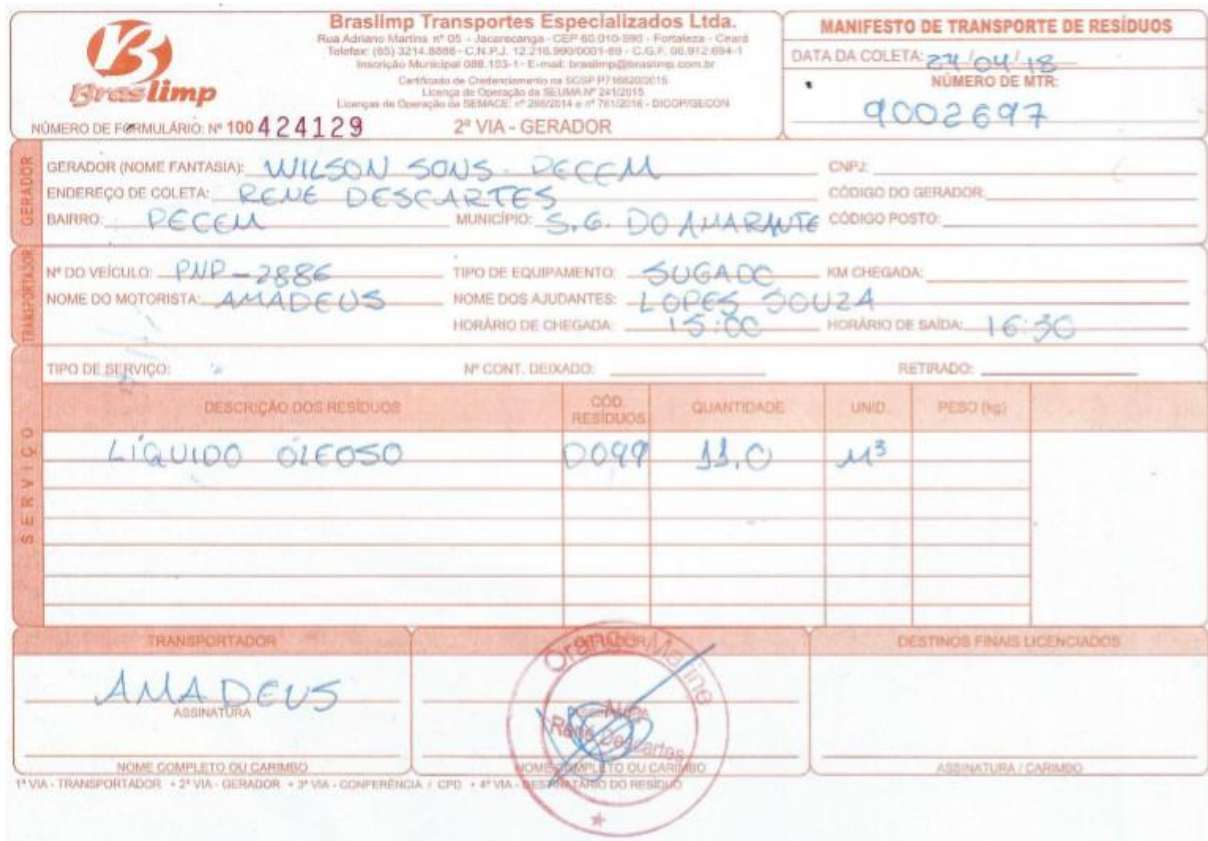 Braslimp
Braslimp Transportes Especializados Ltda.
Rua Adriano Martins nº 05 - Jacarecanga - CEP 60.010-590 - Fortaleza - Ceará
Telefax: (85) 3214.8888 - C.N.P.J. 12.216.990/0001-89 - C.G.F. 06.912.694-1
Inscrição Municipal 088.103-1 - E-mail: braslimp@braslimp.com.br
Certificado de Credenciamento na SCSP P716820/2015
Licença de Operação da SEUMA Nº 241/2015
Licenças de Operação da SEMACE: nº 268/2014 e nº 761/2016 - DICOP/GECON
NÚMERO DE FORMULÁRIO: Nº 100 424129
2ª VIA - GERADOR
MANIFESTO DE TRANSPORTE DE RESÍDUOS
DATA DA COLETA: 27/04/18
NÚMERO DE MTR:
9002697
GERADOR
GERADOR (NOME FANTASIA): WILSON SONS. PECEM CNPJ:
ENDEREÇO DE COLETA: RENE DESCARTES CÓDIGO DO GERADOR:
BAIRRO: PECEM MUNICÍPIO: S.G. DO AMARANTE CÓDIGO POSTO:
TRANSPORTADOR
Nº DO VEÍCULO: PNP-2886 TIPO DE EQUIPAMENTO: SUGADO KM CHEGADA:
NOME DO MOTORISTA: AMADEUS NOME DOS AJUDANTES: LOPES SOUZA
HORÁRIO DE CHEGADA: 15:00 HORÁRIO DE SAÍDA: 16:30
SERVIÇO
TIPO DE SERVIÇO: Nº CONT. DEIXADO: RETIRADO:
DESCRIÇÃO DOS RESÍDUOS CÓD. RESÍDUOS QUANTIDADE UNID. PESO (kg)
LÍQUIDO ÓLEOSO D099 11,0 M³
TRANSPORTADOR GERADOR DESTINOS FINAIS LICENCIADOS
Orange Marine
AMADEUS
ASSINATURA
René Descartes
NOME COMPLETO OU CARIMBO NOME COMPLETO OU CARIMBO ASSINATURA / CARIMBO
1ª VIA - TRANSPORTADOR + 2ª VIA - GERADOR + 3ª VIA - CONFERÊNCIA / CPD + 4ª VIA - DESTINATÁRIO DO RESÍDUO